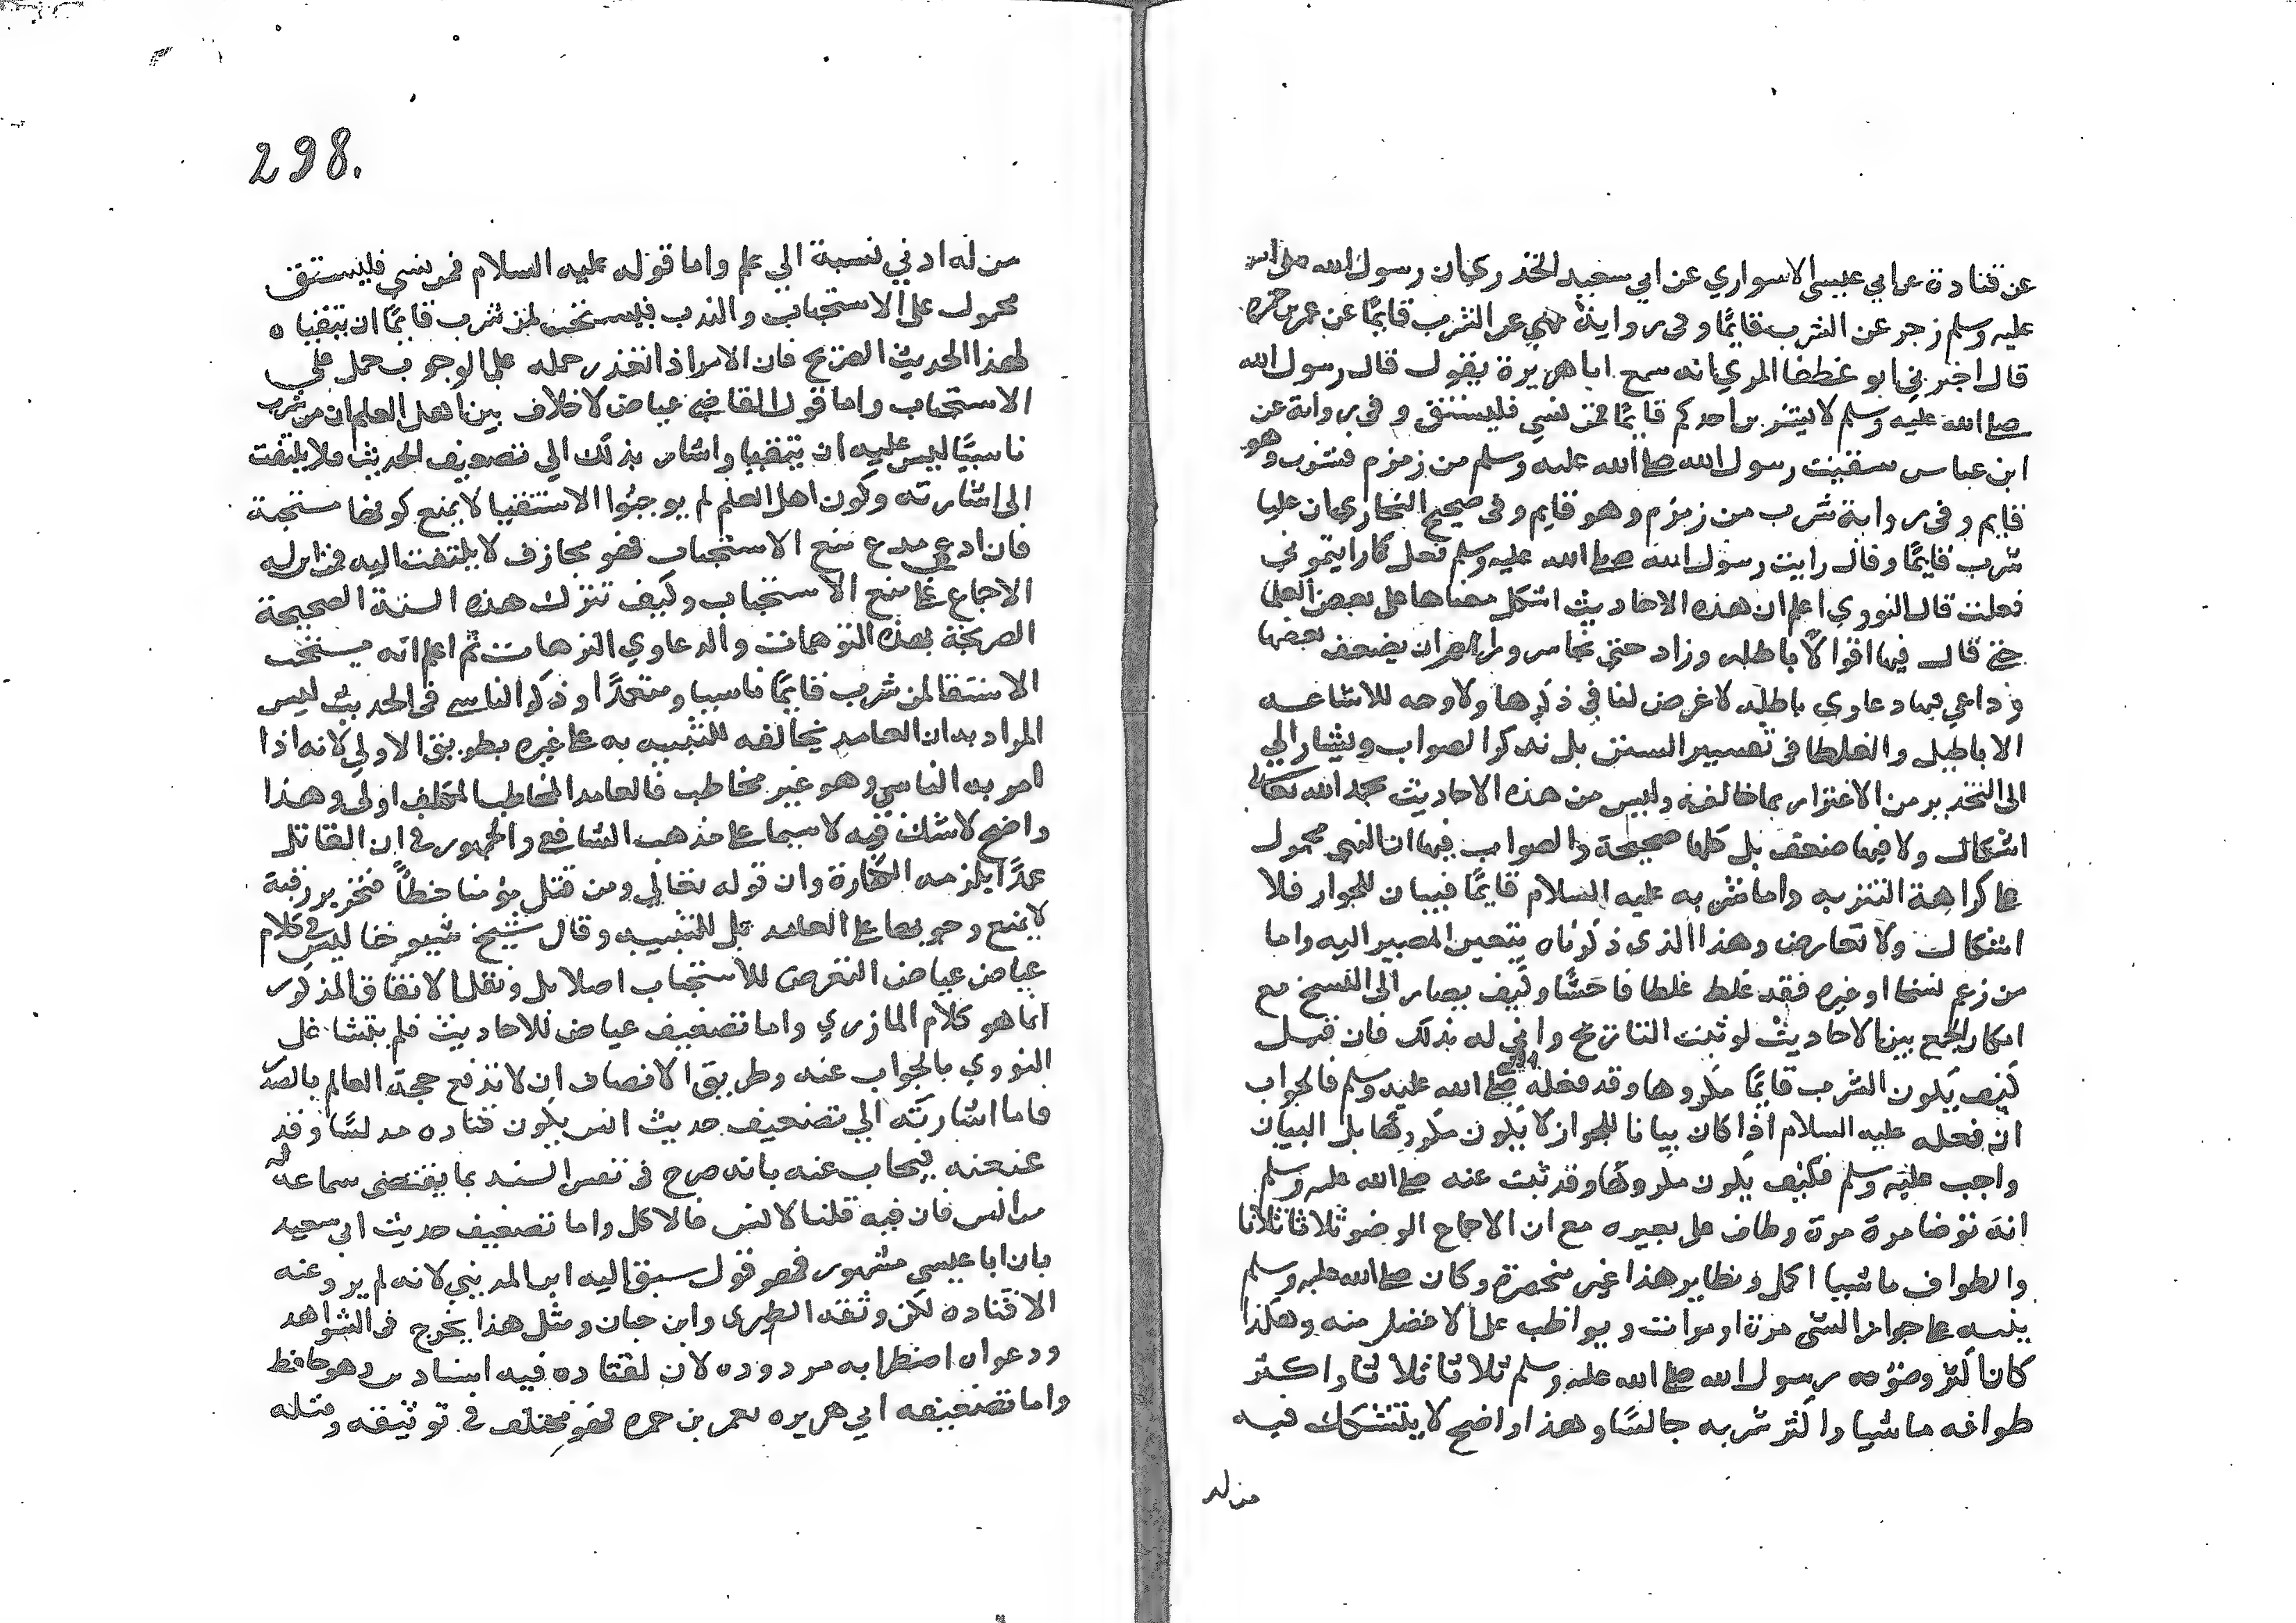 عن قتادة عن ابي عيسى الاسواري عن ابي سعيد الخدري ان رسول الله صلى الله
عليه وسلم زجر عن الشرب قايمًا وفي رواية نهي عن الشرب قايمًا عن عمر بن حمزة
قال اخبرني ابو غطفا المري انه سمع اباهريرة يقول قال رسول الله
صلى الله عليه وسلم لا يشربن احدكم قايمًا فمن نسي فليستقي وفي رواية عن
ابن عباس سقيت رسول الله صلى الله عليه وسلم من زمزم فشرب وهو
قايم وفي رواية شرب من زمزم وهو قايم وفي صحيح البخاري ان عليا
شرب قايمًا وقال رايت رسول الله صلى الله عليه وسلم فعل كما رايتموني
فعلت قال النووي اعلم ان هذه الاحاديث اشكل معناها على بعض العلما
حتى قال فيها اقوالًا باطله وزاد حتى تجاسر ورام ان يضعف بعضها
وداعي فيها دعاوي باطله لا غرض لنا في ذكرها ولا وجه للاشاعه
الاباطيل والغلطا في تفسير السنن بل نذكر الصواب ويشار الي
الى التحذير من الاغترار بما خالفه وليس من هذه الاحاديث بحمد الله تعالى
اشكال ولا فيها ضعف بل كلها صحيحة والصواب فيها ان النهي محمول
على كراهة التنزيه واما شربه عليه السلام قايمًا فبيان للجواز فلا
اشكال ولا تعارض وهذا الذي ذكرناه يتعين المصير اليه واما
من زعم نسخا او غيره فقد غلط غلطا فاحشًا وكيف يصار الى النسخ مع
امكان الجمع بين الاحاديث لو ثبت التاريخ واني له بذلك فان قيل
كيف يكون الشرب قايمًا مكروها وقد فعله صلى الله عليه وسلم فالجواب
ان فعله عليه السلام اذا كان بيانا للجواز لا يكون مكروهًا بل البيان
واجب عليه وسلم فكيف يكون مكروهًا وقد ثبت عنه صلى الله عليه وسلم
انه توضا مرة مرة وطاف على بعيره مع ان الاجماع الوضو ثلاثا ثلاثا
والطواف ماشيا اكمل ونظاير هذا غير منحصرة وكان صلى الله عليه وسلم
ينبه على جواز الشي مرة او مرات ويواظب على الافضل منه وهكذا
كان اكثر وضوءه رسول الله صلى الله عليه وسلم ثلاثا ثلاثا واكثر
طوافه ماشيا واكثر شربه جالسًا وهذا واضح لا يتشكك فيه
من له
298.
من له ادني نسبة الي علم واما قوله عليه السلام فمن نسي فليستقي
محمول على الاستحباب والندب فيستحب لمن شرب قايمًا ان يتقياه
لهذا الحديث الصريح فان الامر اذا تعذر حمله على الوجوب حمل على
الاستحباب واما قول القاضي عياض لا خلاف بين اهل العلم ان من شرب
ناسيًا ليس عليه ان يتقيا واشار بذلك الي تضعيف الحديث فلا يلتفت
الى اشارته وكون اهل العلم لم يوجبوا الاستقيا لا يمنع كونها مستحبة
فان ادعي مدع منع الاستحباب فهو مجازف لا يلتفت اليه فمن اين له
الاجماع على منع الاستحباب وكيف تترك هذه السنة الصحيحة
الصريحة بهذه التوهمات والدعاوي الترهات ثم اعلم انه يستحب
الاستقا لمن شرب قايمًا ناسيا ومتعمدًا وذكر الناسي في الحديث ليس
المراد به ان العامد يخالفه للتنبيه به على غيره بطريق الاولي لانه اذا
امر به الناسي وهو غير مخاطب فالعامد المخاطب المكلف اولى وهذا
واضح لا شك فيه لا سيما على مذهب الشافعي والجمهور في ان القاتل
عمدًا يلزمه الكفارة وان قوله تعالي ومن قتل مؤمنا خطأً فتحرير رقبة
لا يمنع وجوبها على العامد بل للتنبيه وقال شيخ شيوخنا ليس في كلام
عياض عياض التعرض للاستحباب اصلا بل ونقل الاتفاق المذكور
انما هو كلام المازري واما تضعيف عياض للاحاديث فلم يتشاغل
النووي بالجواب عنه وطريق الانصاف ان لا تدفع حجة العالم بالصد
فاما اشارته الي تضعيف حديث انس بكون قتاده مدلسًا وقد
عنعنه فيجاب عنه بانه صرح في نفس السند بما يقتضي سماعه له
من انس فان فيه قلنا لانس فالاكل واما تضعيف حديث ابي سعيد
بان ابا عيسي مشهور فهو قول سبق اليه ابن المديني لانه لم يرو عنه
الا قتاده لكن وثقه الطبري وابن حبان ومثل هذا يخرج في الشواهد
ودعواه اضطرابه مردوده لان لقتاده فيه اسنادين وهو حافظ
واما تضعيفه ابي هريره بعمر بن حمزه فهو مختلف في توثيقه ومثله